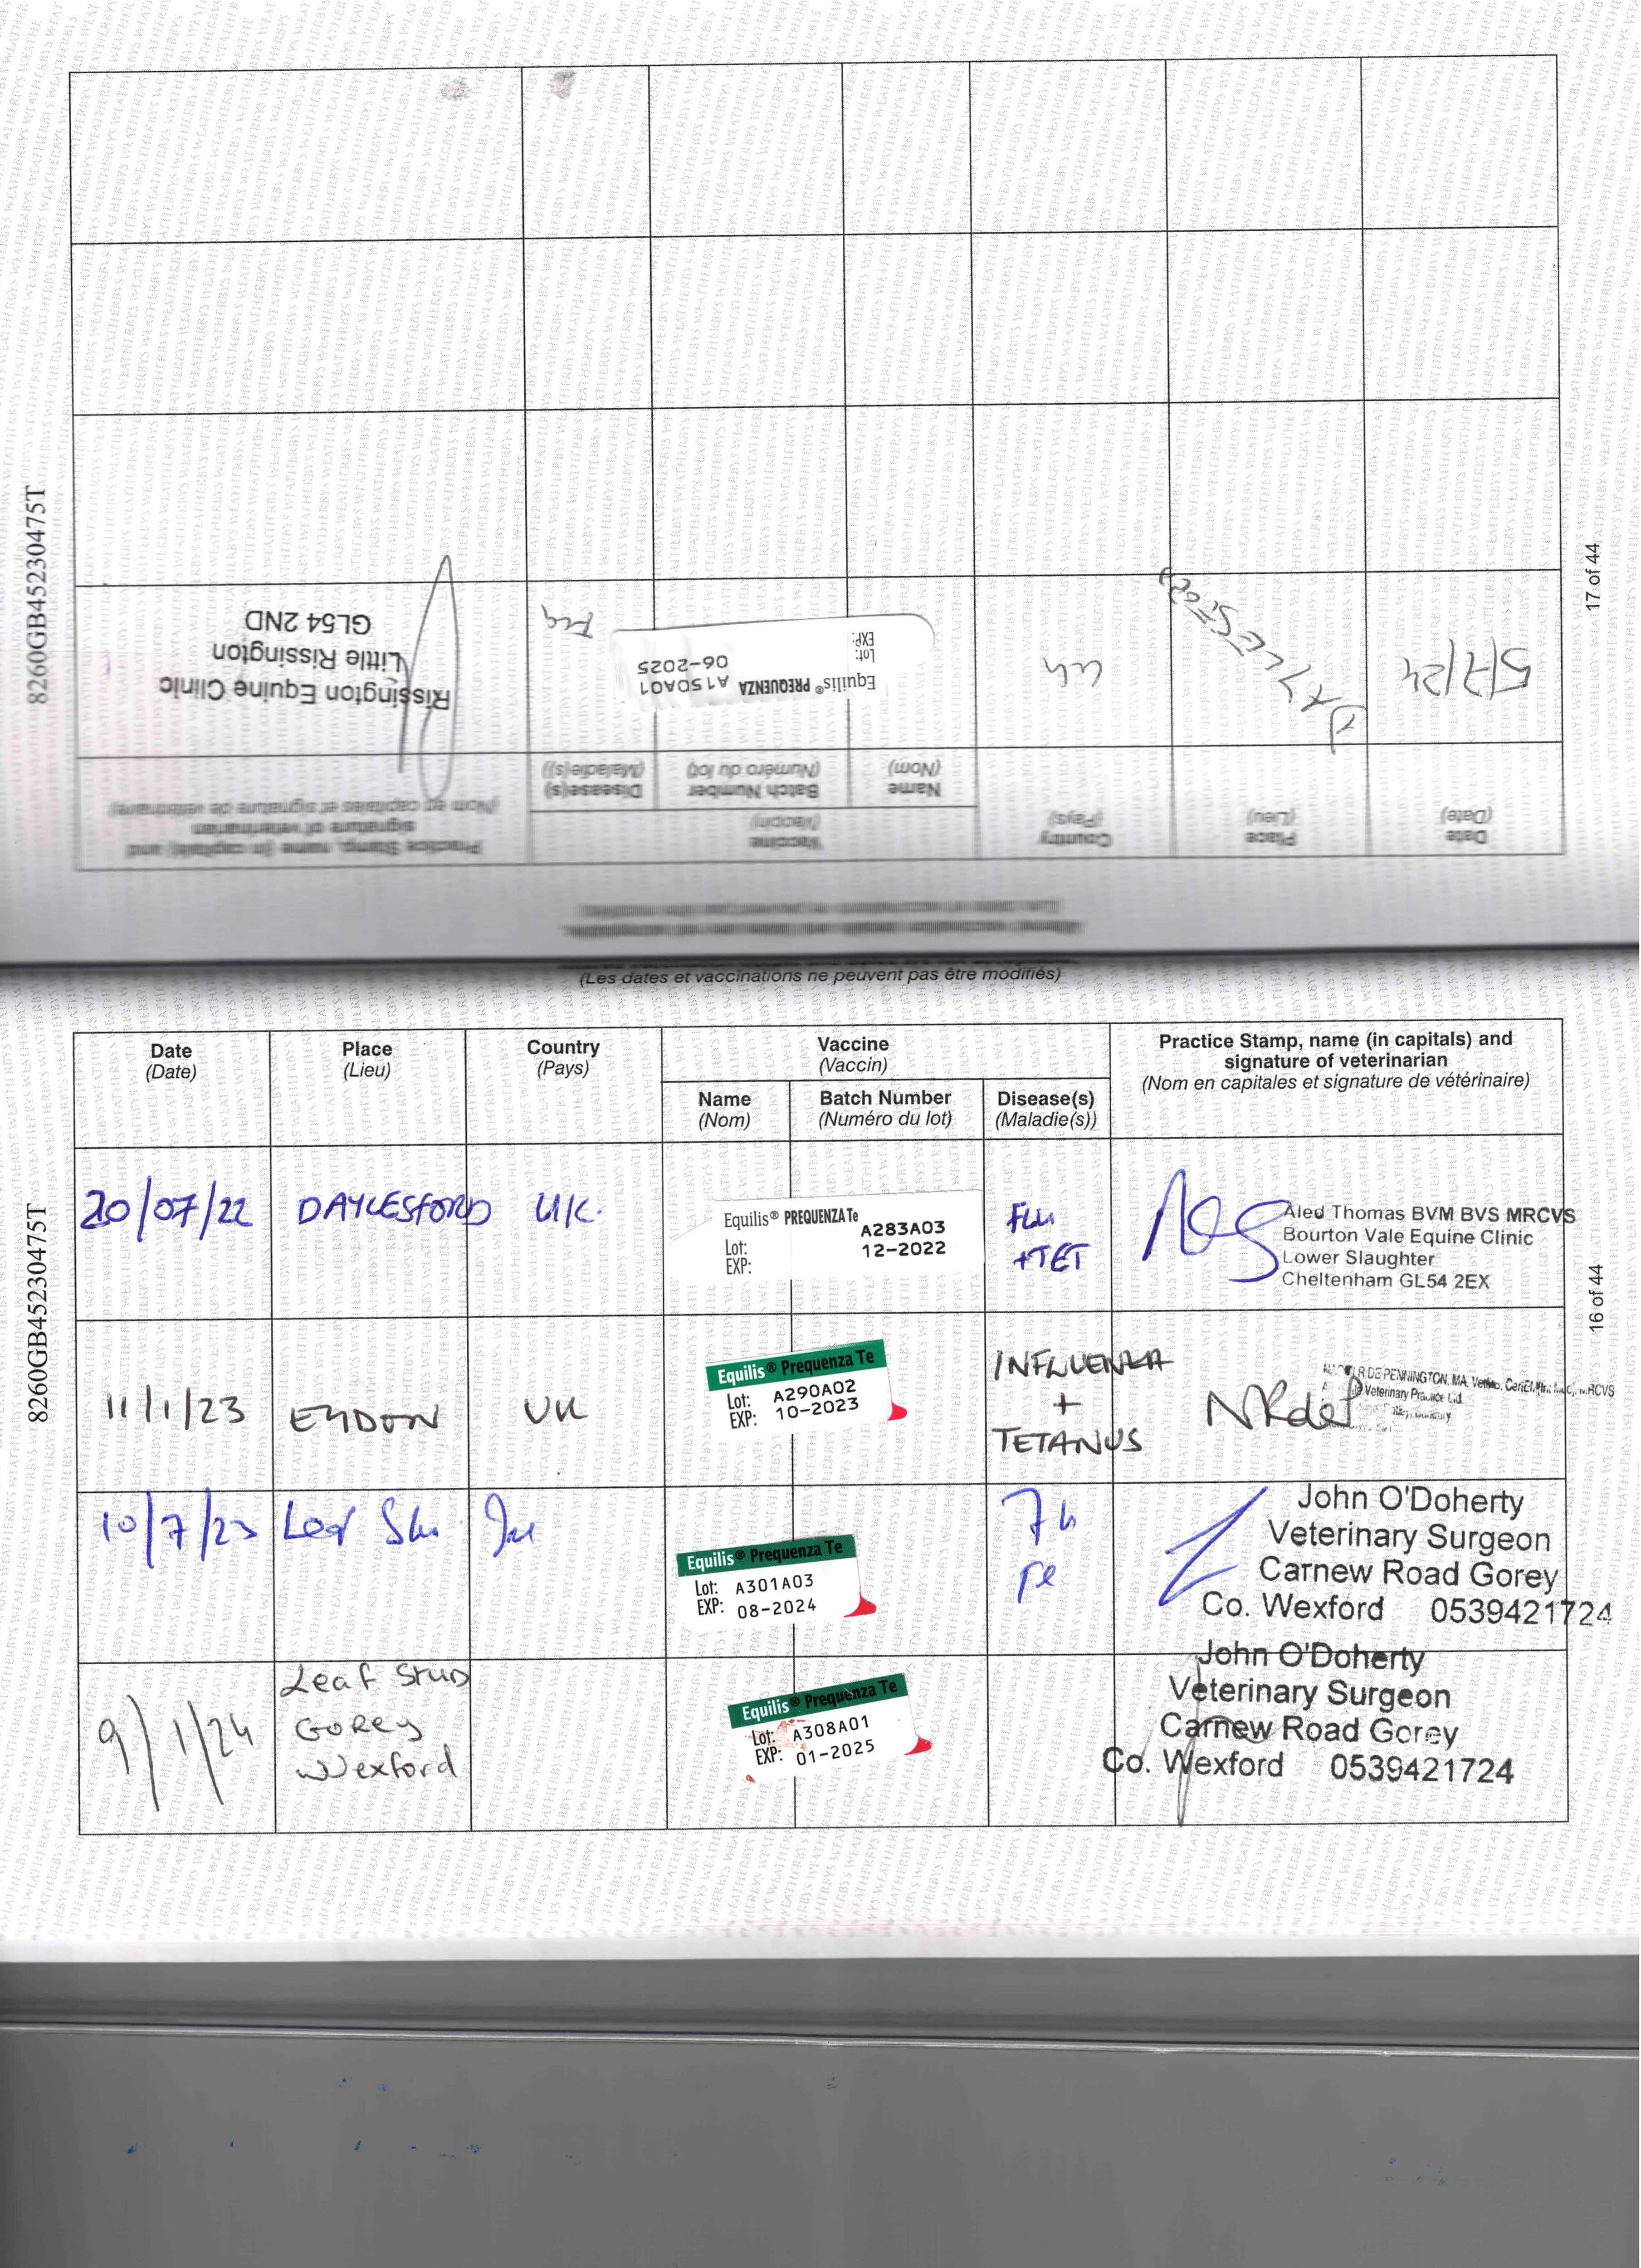 8260GB45230475T
17 of 44
Altered vaccination details and dates are not acceptable.
(Les dates et vaccinations ne peuvent pas être modifiés)
Date
(Date)
Place
(Lieu)
Country
(Pays)
Vaccine
(Vaccin)
Name
(Nom)
Batch Number
(Numéro du lot)
Disease(s)
(Maladie(s))
Practice Stamp, name (in capitals) and
signature of veterinarian
(Nom en capitales et signature de vétérinaire)
5/7/24
DAYLESFORD
Uk
Equilis® PREQUENZA A150A01
Lot: 06-2025
EXP:
Rissington Equine Clinic
Little Rissington
GL54 2ND
(Les dates et vaccinations ne peuvent pas être modifiés)
8260GB45230475T
16 of 44
Date
(Date)
Place
(Lieu)
Country
(Pays)
Vaccine
(Vaccin)
Name
(Nom)
Batch Number
(Numéro du lot)
Disease(s)
(Maladie(s))
Practice Stamp, name (in capitals) and
signature of veterinarian
(Nom en capitales et signature de vétérinaire)
20/07/22
DAYLESFORD
UK.
Equilis® PREQUENZA Te
A283A03
Lot: 12-2022
EXP:
Flu
+TET
Aled Thomas BVM BVS MRCVS
Bourton Vale Equine Clinic
Lower Slaughter
Cheltenham GL54 2EX
11/1/23
EYDON
UK
Equilis® Prequenza Te
Lot: A290A02
EXP: 10-2023
INFLUENZA
+
TETANUS
R DE PENNINGTON, MA
Veterinary Practice Ltd
10/7/23
Leaf
Equilis® Prequenza Te
Lot: A301A03
EXP: 08-2024
Te
John O'Doherty
Veterinary Surgeon
Carnew Road Gorey
Co. Wexford 0539421724
9/1/24
Leaf Stud
Gorey
Wexford
Equilis® Prequenza Te
Lot: A308A01
EXP: 01-2025
John O'Doherty
Veterinary Surgeon
Carnew Road Gorey
Co. Wexford 0539421724